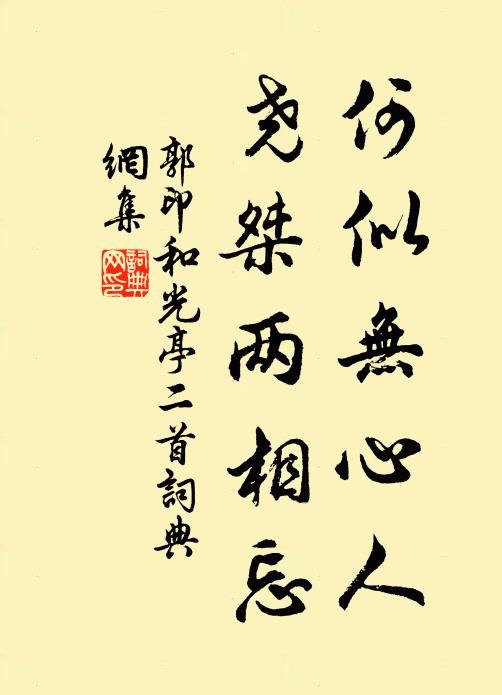 何似無心人
尧桀两相忘
郭印和光亭二首詞典
網集
詞典
网印